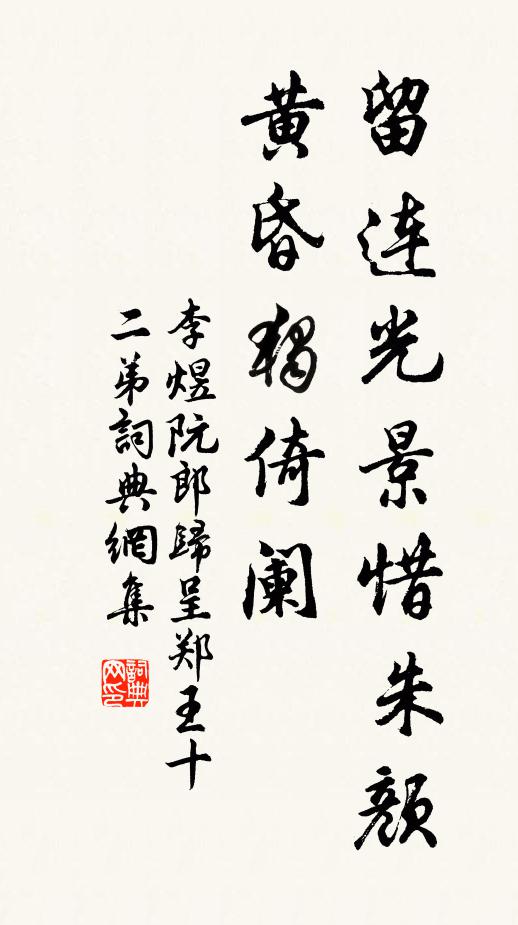 留连光景惜朱颜
黄昏独倚阑
李煜阮郎歸呈郑王十
二弟詞典網集
詞典网印